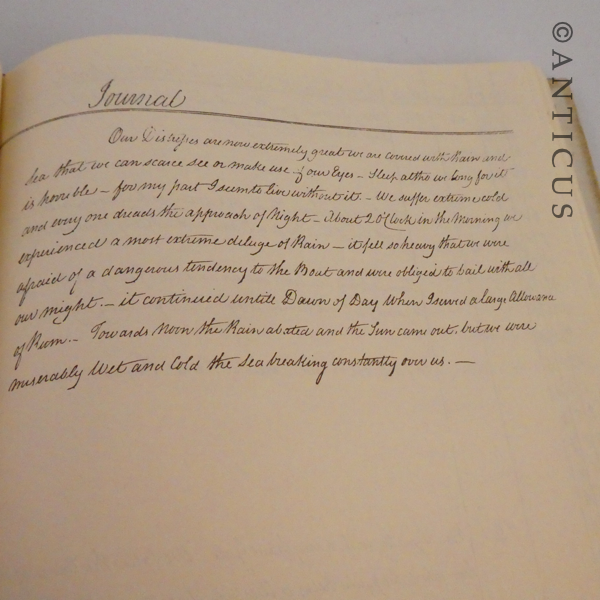 Journal
Our Distresses are now extremely great we are covered with Rain and
Sea that we can scarce see or make use of our Eyes - Sleep altho we long for it
is horrible - for my part I seem to live without it. - We suffer extreme cold
and every one dreads the approach of Night - About 2 O'Clock in the Morning we
experienced a most extreme deluge of Rain - it fell so heavy that we were
afraid of a dangerous tendency to the Boat and were obliged to bail with all
our might. - it continued untill Dawn of Day When I served a large Allowance
of Rum. - Towards Noon the Rain abated and the Sun came out. but we were
miserably Wet and Cold the Sea breaking constantly over us. -
© ANTICUS